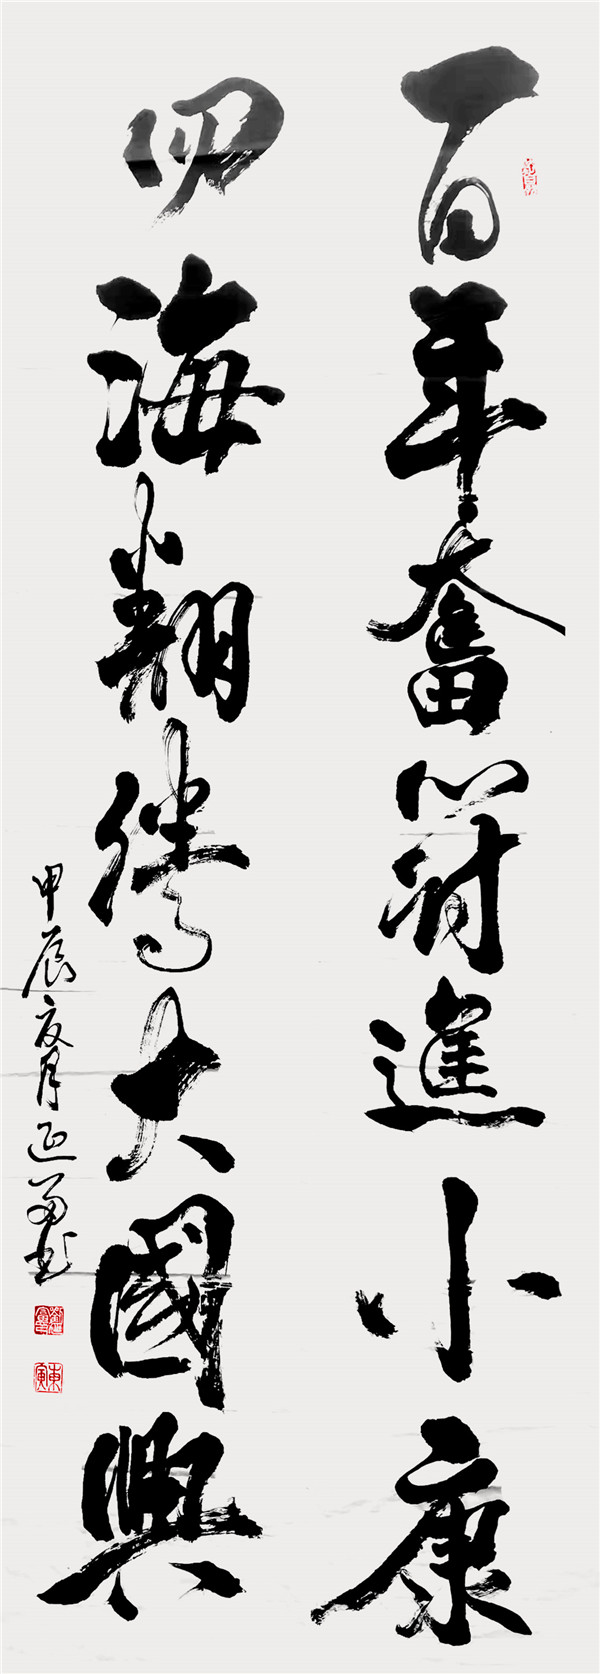 百年奮鬪進小康
四海翻騰大國興
甲辰夏月延書